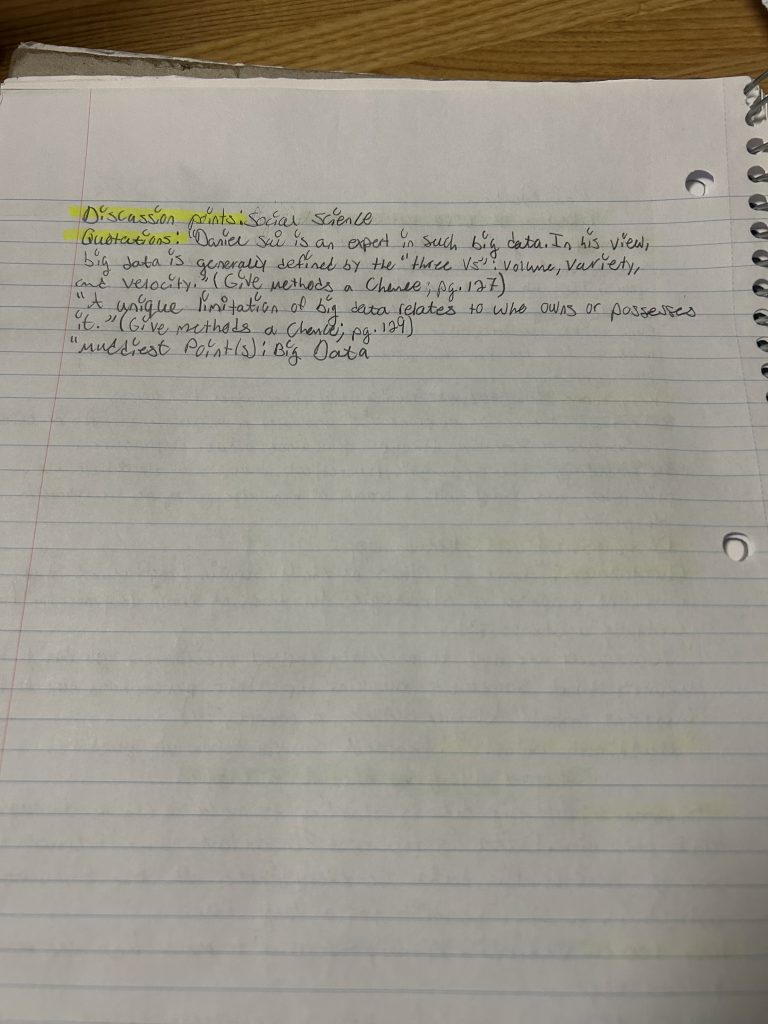 Discussion points: Social Science
Quotations: "Daniel Sui is an expert in such big data. In his view,
big data is generally defined by the "three Vs": volume, variety,
and velocity." (Give methods a Chance; pg. 127)
"A unique limitation of big data relates to who owns or possesses
it." (Give methods a Chance; pg. 129)
"Muddiest Point(s): Big Data